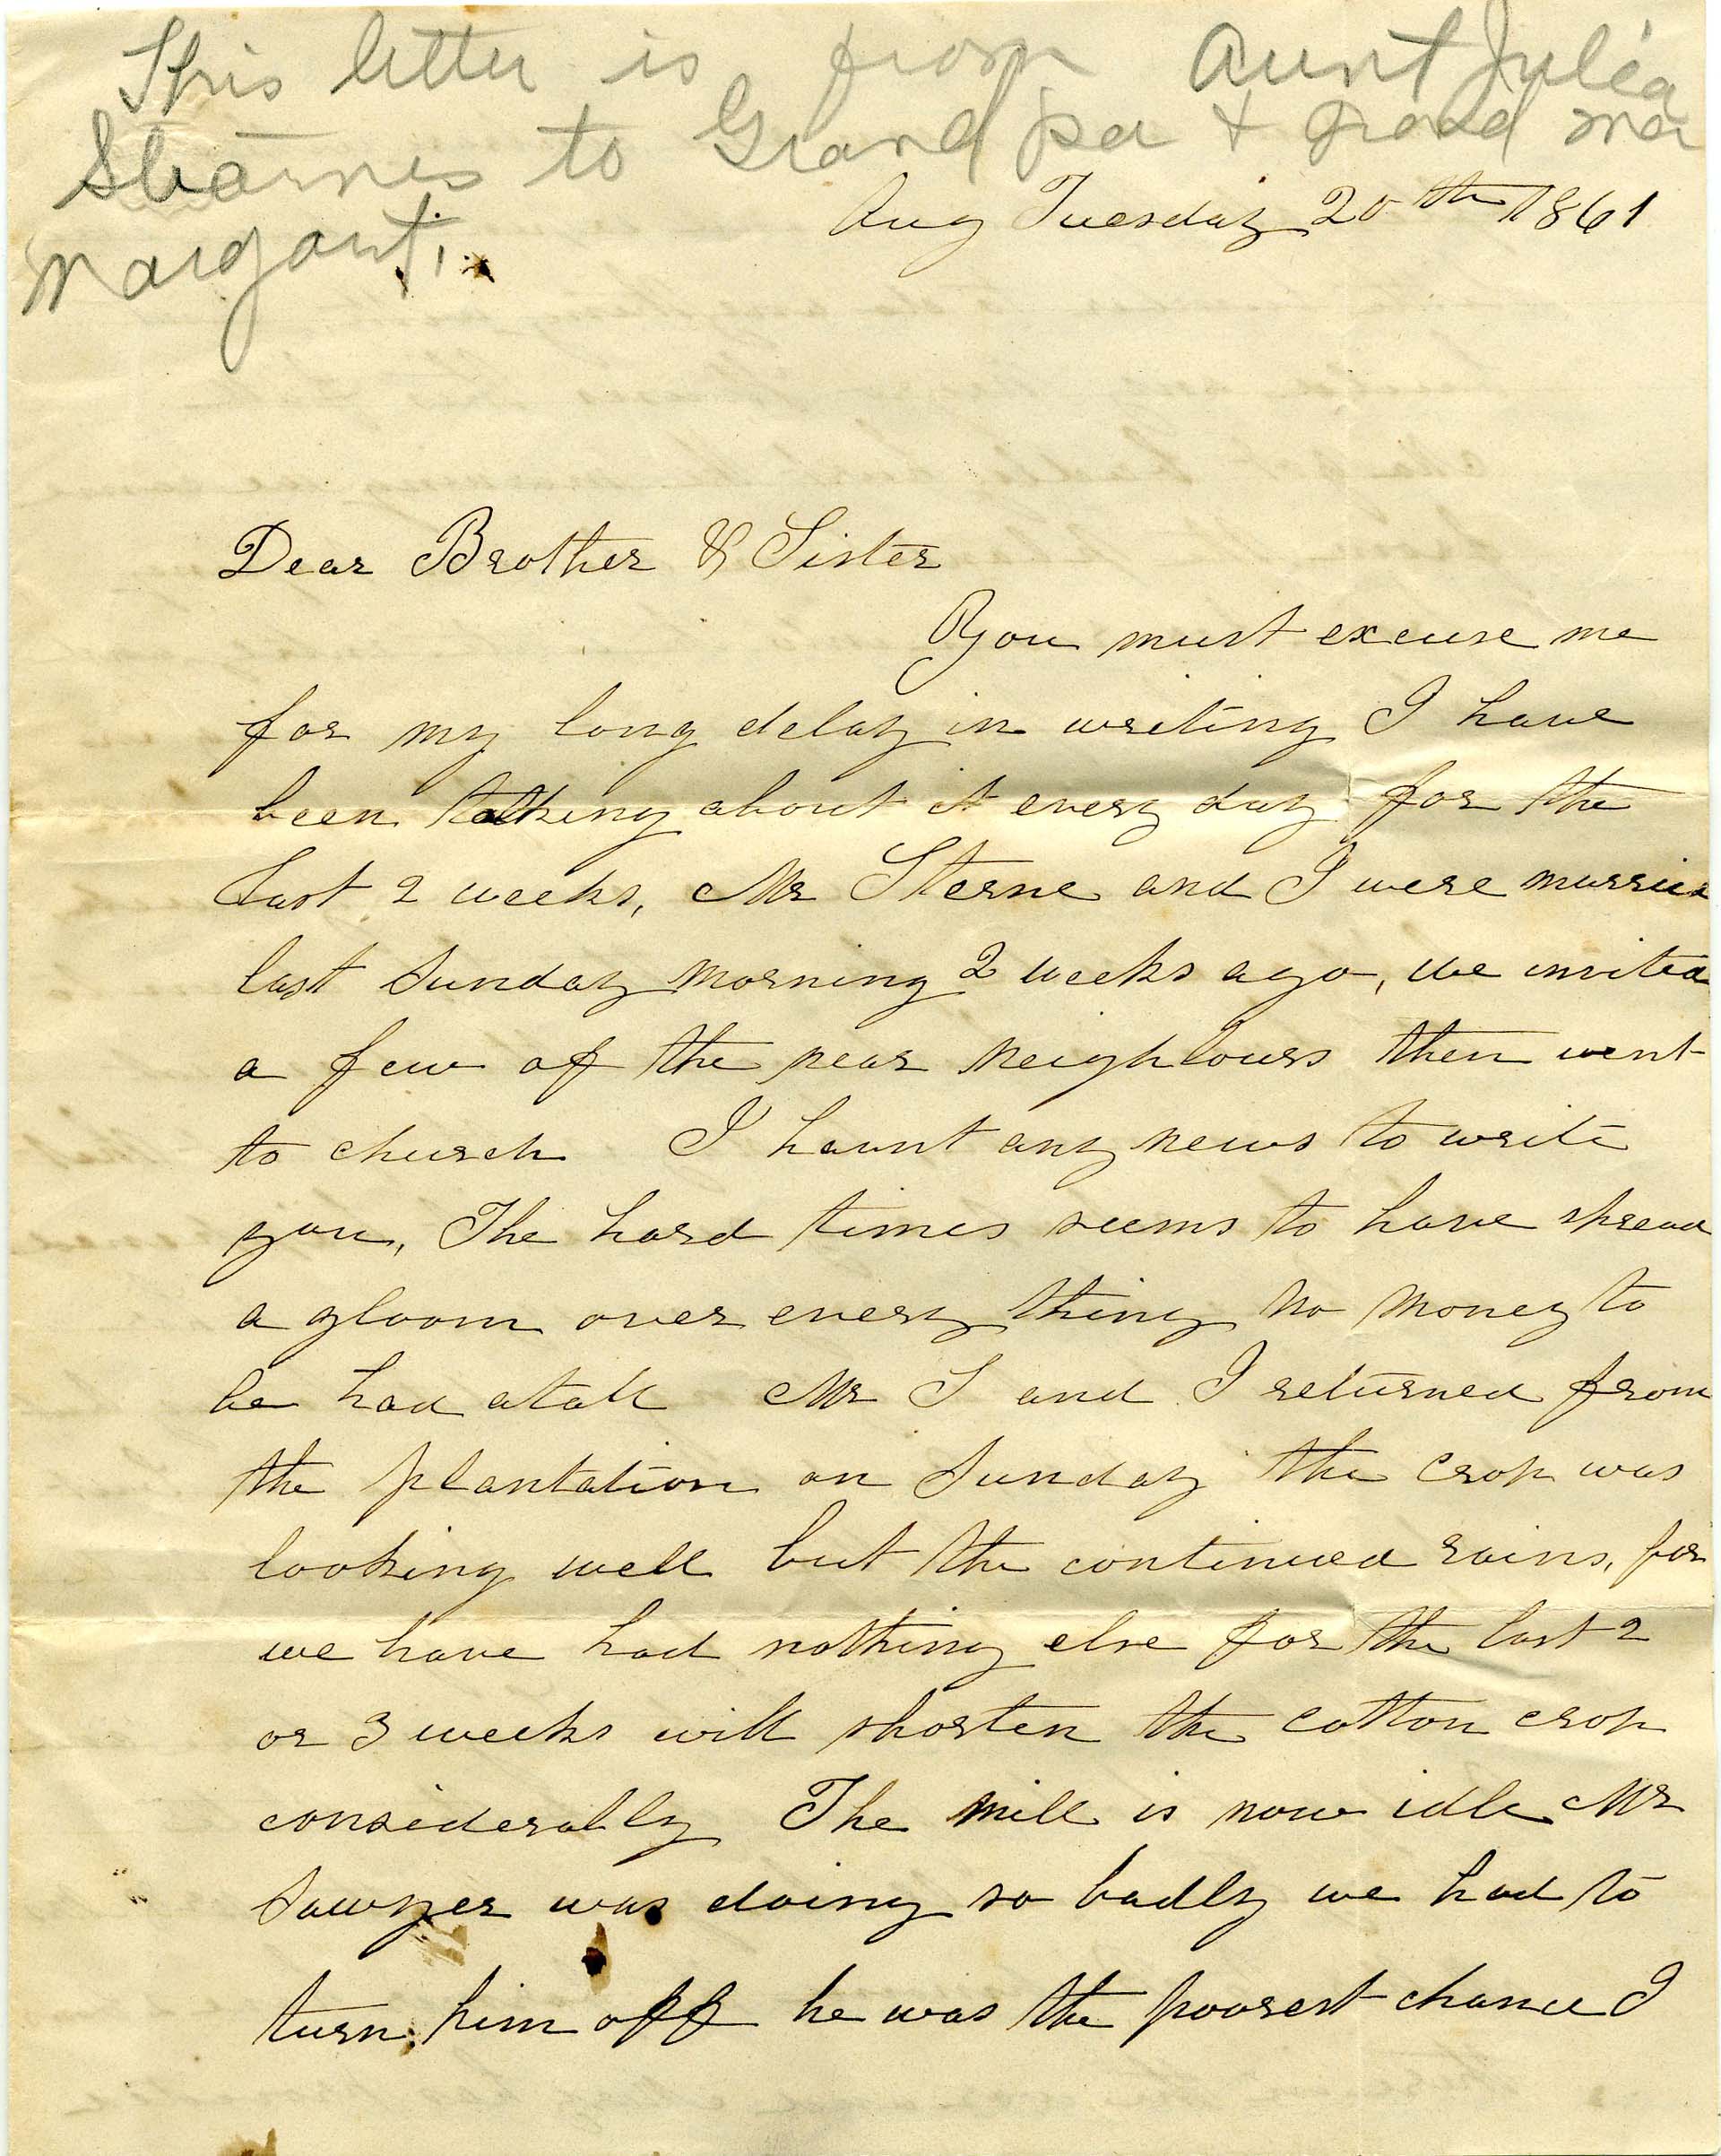 This letter is from Aunt Julia
Stearnes to Grand pa & Grand ma
Margant.
Aug Tuesday 20th 1861
Dear Brother & Sister
You must excuse me
for my long delay in writing I have
been talking about it every day for the
last 2 weeks, Mr Sterne and I were married
last Sunday morning 2 weeks ago, we invited
a few of the near neighbours then went
to church I haunt any news to write
you, The hard times seems to have spread
a gloom over every thing no money to
be had atall Mr S and I returned from
the plantation on Sunday the crop was
looking well but the continued rains, for
we have had nothing else for the last 2
or 3 weeks will shorten the cotton crop
considerally The mill is now idle Mr
Sawyer was doing so badly we had to
turn him off he was the poorest chance I